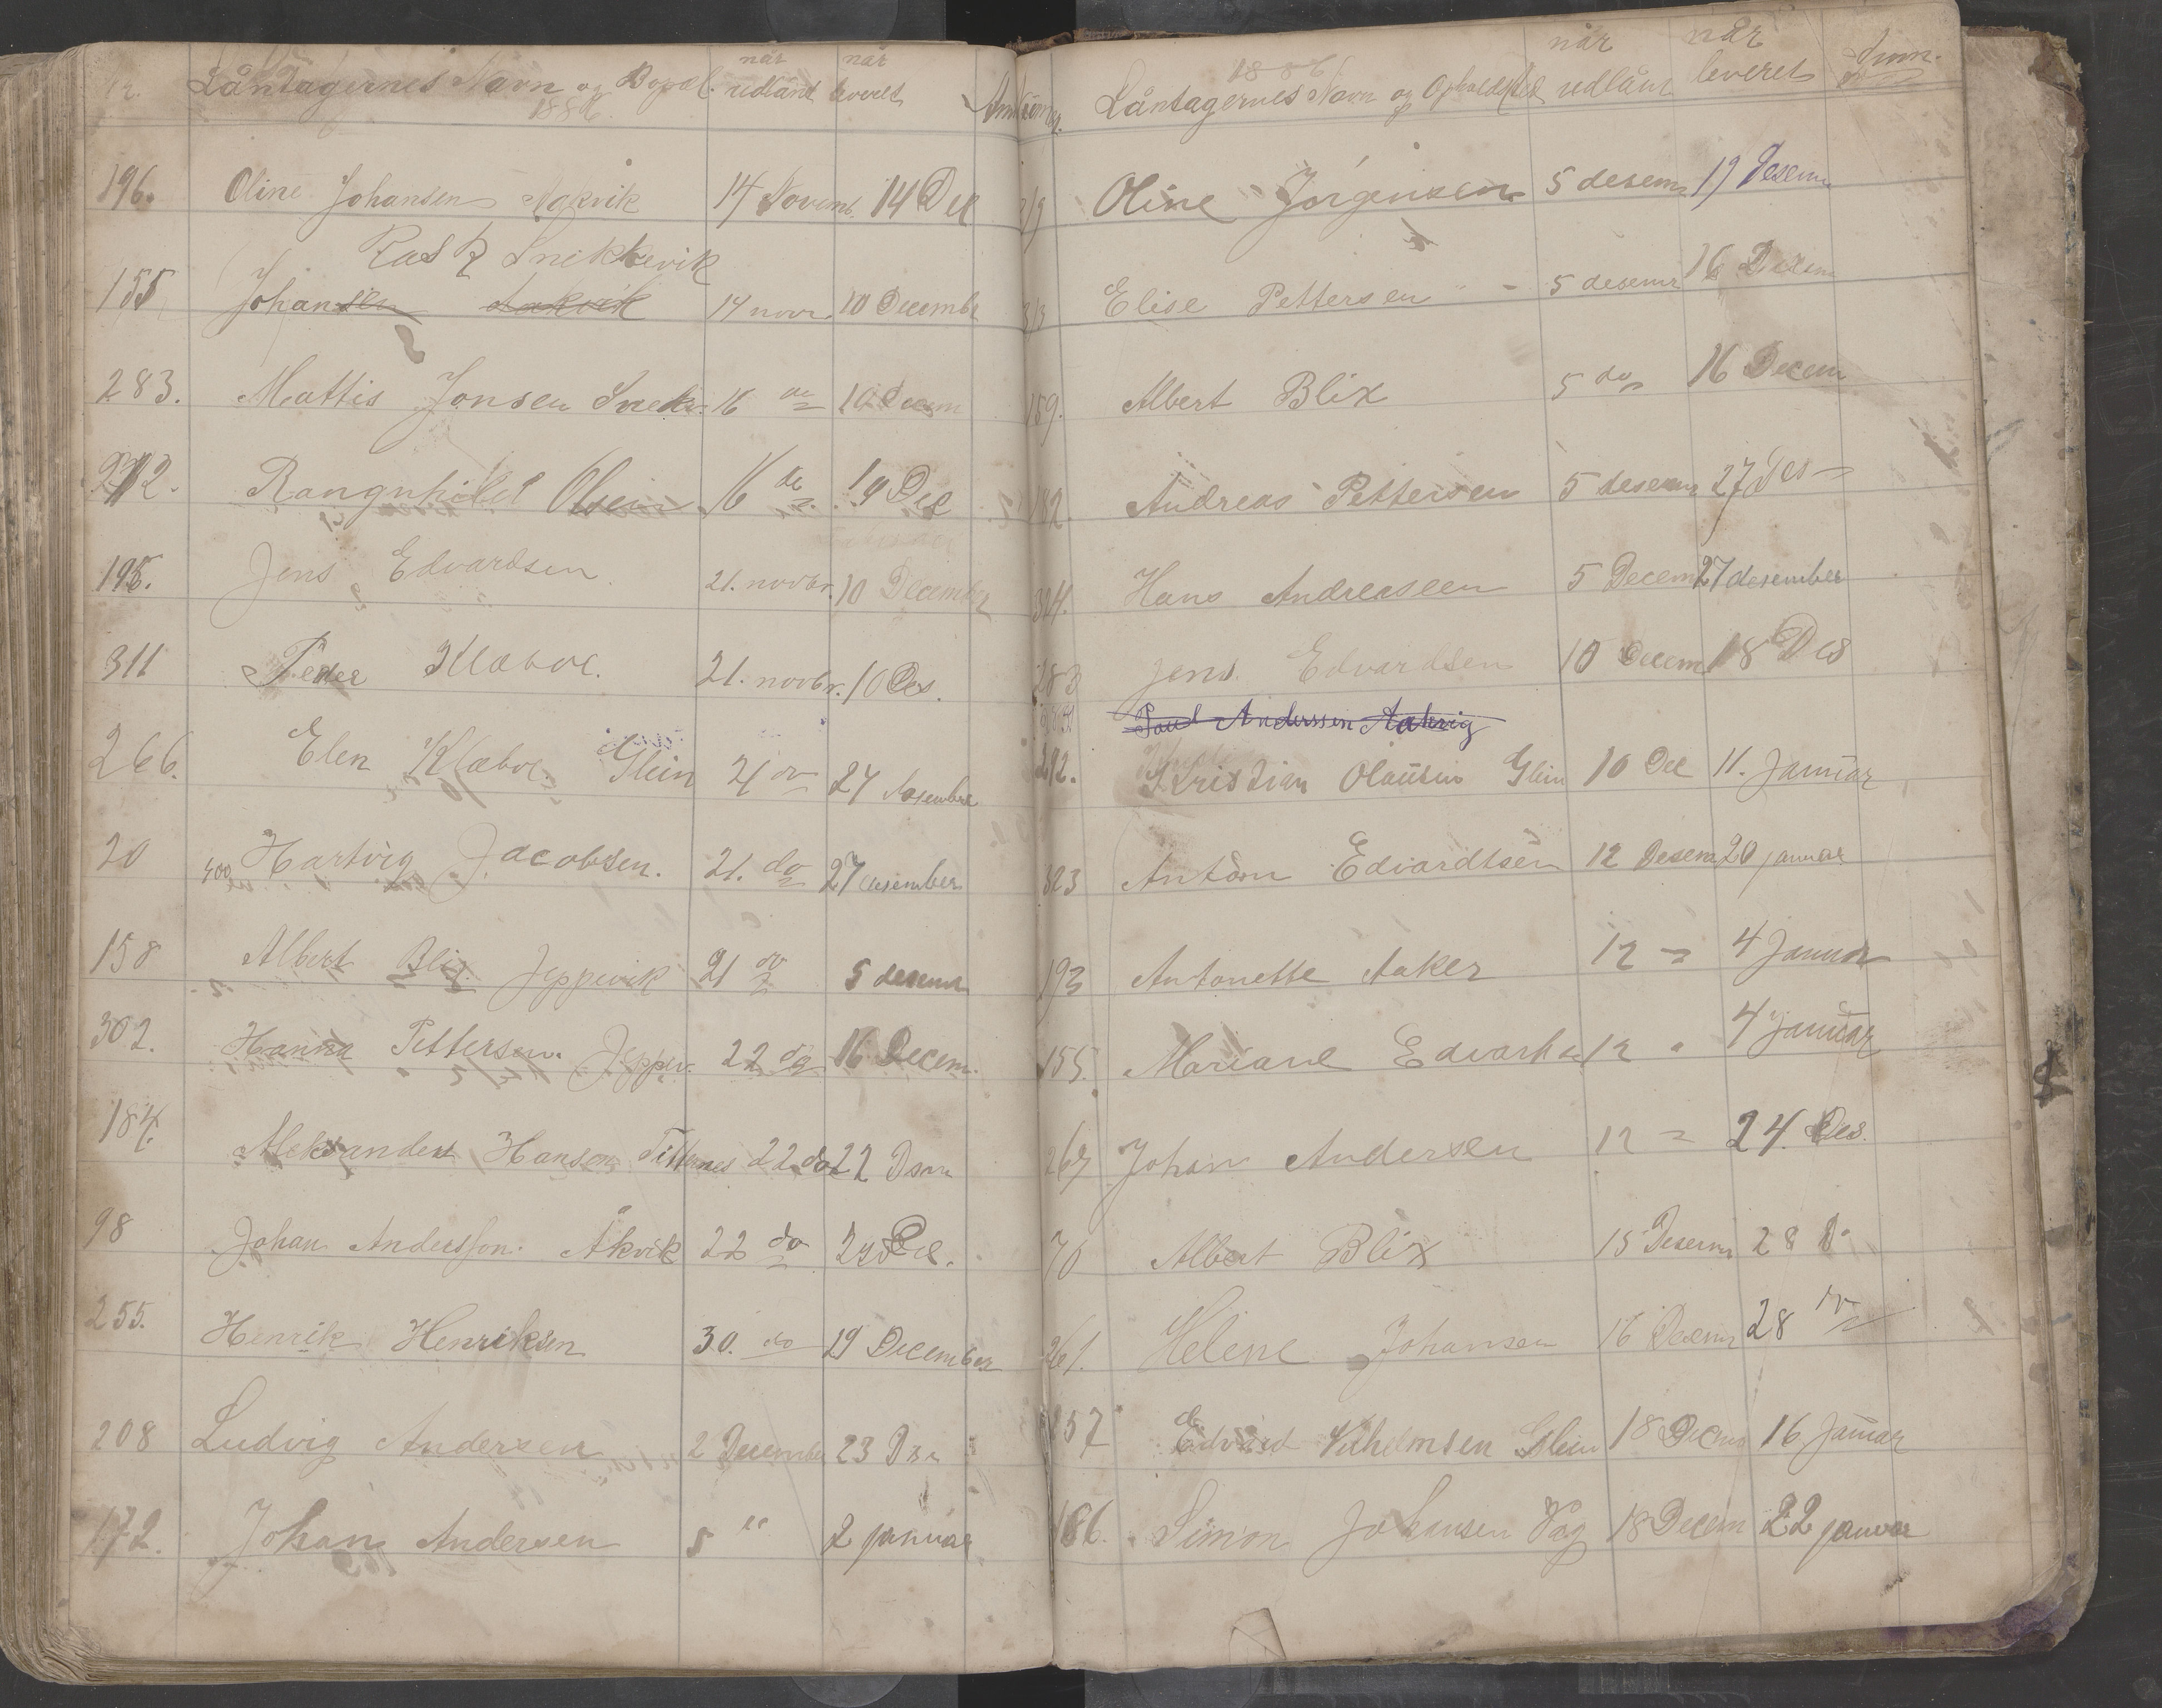 Nr. Låntagernes Navn og Bopæl. når udlånt når leveret Anm
1886
196. Oline Johansen Aakvik 14 Novemb. 14 Dec
Rask Snekkevik
155 Johansen Aakvik 14 novr. 10 Decembr
283. Mattis Jonsen Snek. 16 do 10 Decem
272. Rangnhild Olsen 16 do 19 Dec
195. Jens Edvardsen. 21. novbr. 10 December
311 Peder Klæboe. 21. novbr. 10 Des.
266. Elen Klæboe. Glein 21 do 27 desember
20 Hartvig Jacobsen. 21. do 27 desember
158 Albert Blix Jeppevik 21 do 5 desem
302. Hanna Pettersen. Jeppev. 22 do 16 Decem.
184. Aleksander Hanson Titternes 22 do 22 Dsm
98 Johan Anderssen. Åkvik 22 do Dec.
255. Henrik Henriksen 30. do 19 December
208 Ludvig Andersen 2 December 23 Dsm
172. Johan Andersen 5 " 2 januar
1886
Låntagernes Navn og Opholdsted når udlånt når leveret Anm.
Oline Jørgensen 5 desem 19 Desem
313 Elise Pettersen 5 desemr 16 Decem
159. Albert Blix 5 do 16 Decem
182. Andreas Pettersen 5 desemr 27 Des
324. Hans Andreasen 5 Decem 27 desember
283 Jens Edvardsen 10 Decem 18 Des
Paul Anderssen Aakvig
292. Kristian Olausen Glein 10 Dec 11. Januar
323 Anton Edvardtsen 12 Desem 20 januar
193 Antonette Aaker 12 " 4 Januar
155. Mariane Edvards 12 " 4 Januar
267 Johan Andersen 12 " 24. Des.
70 Albert Blix 15 Desemr 28 D
261. Helene Johansen 16 Desemr 28 do
257 Edvard Vilhelmsen Glein 18 Decm 16 Januar
186. Simon Johansen Våg 18 Decem 22 januar